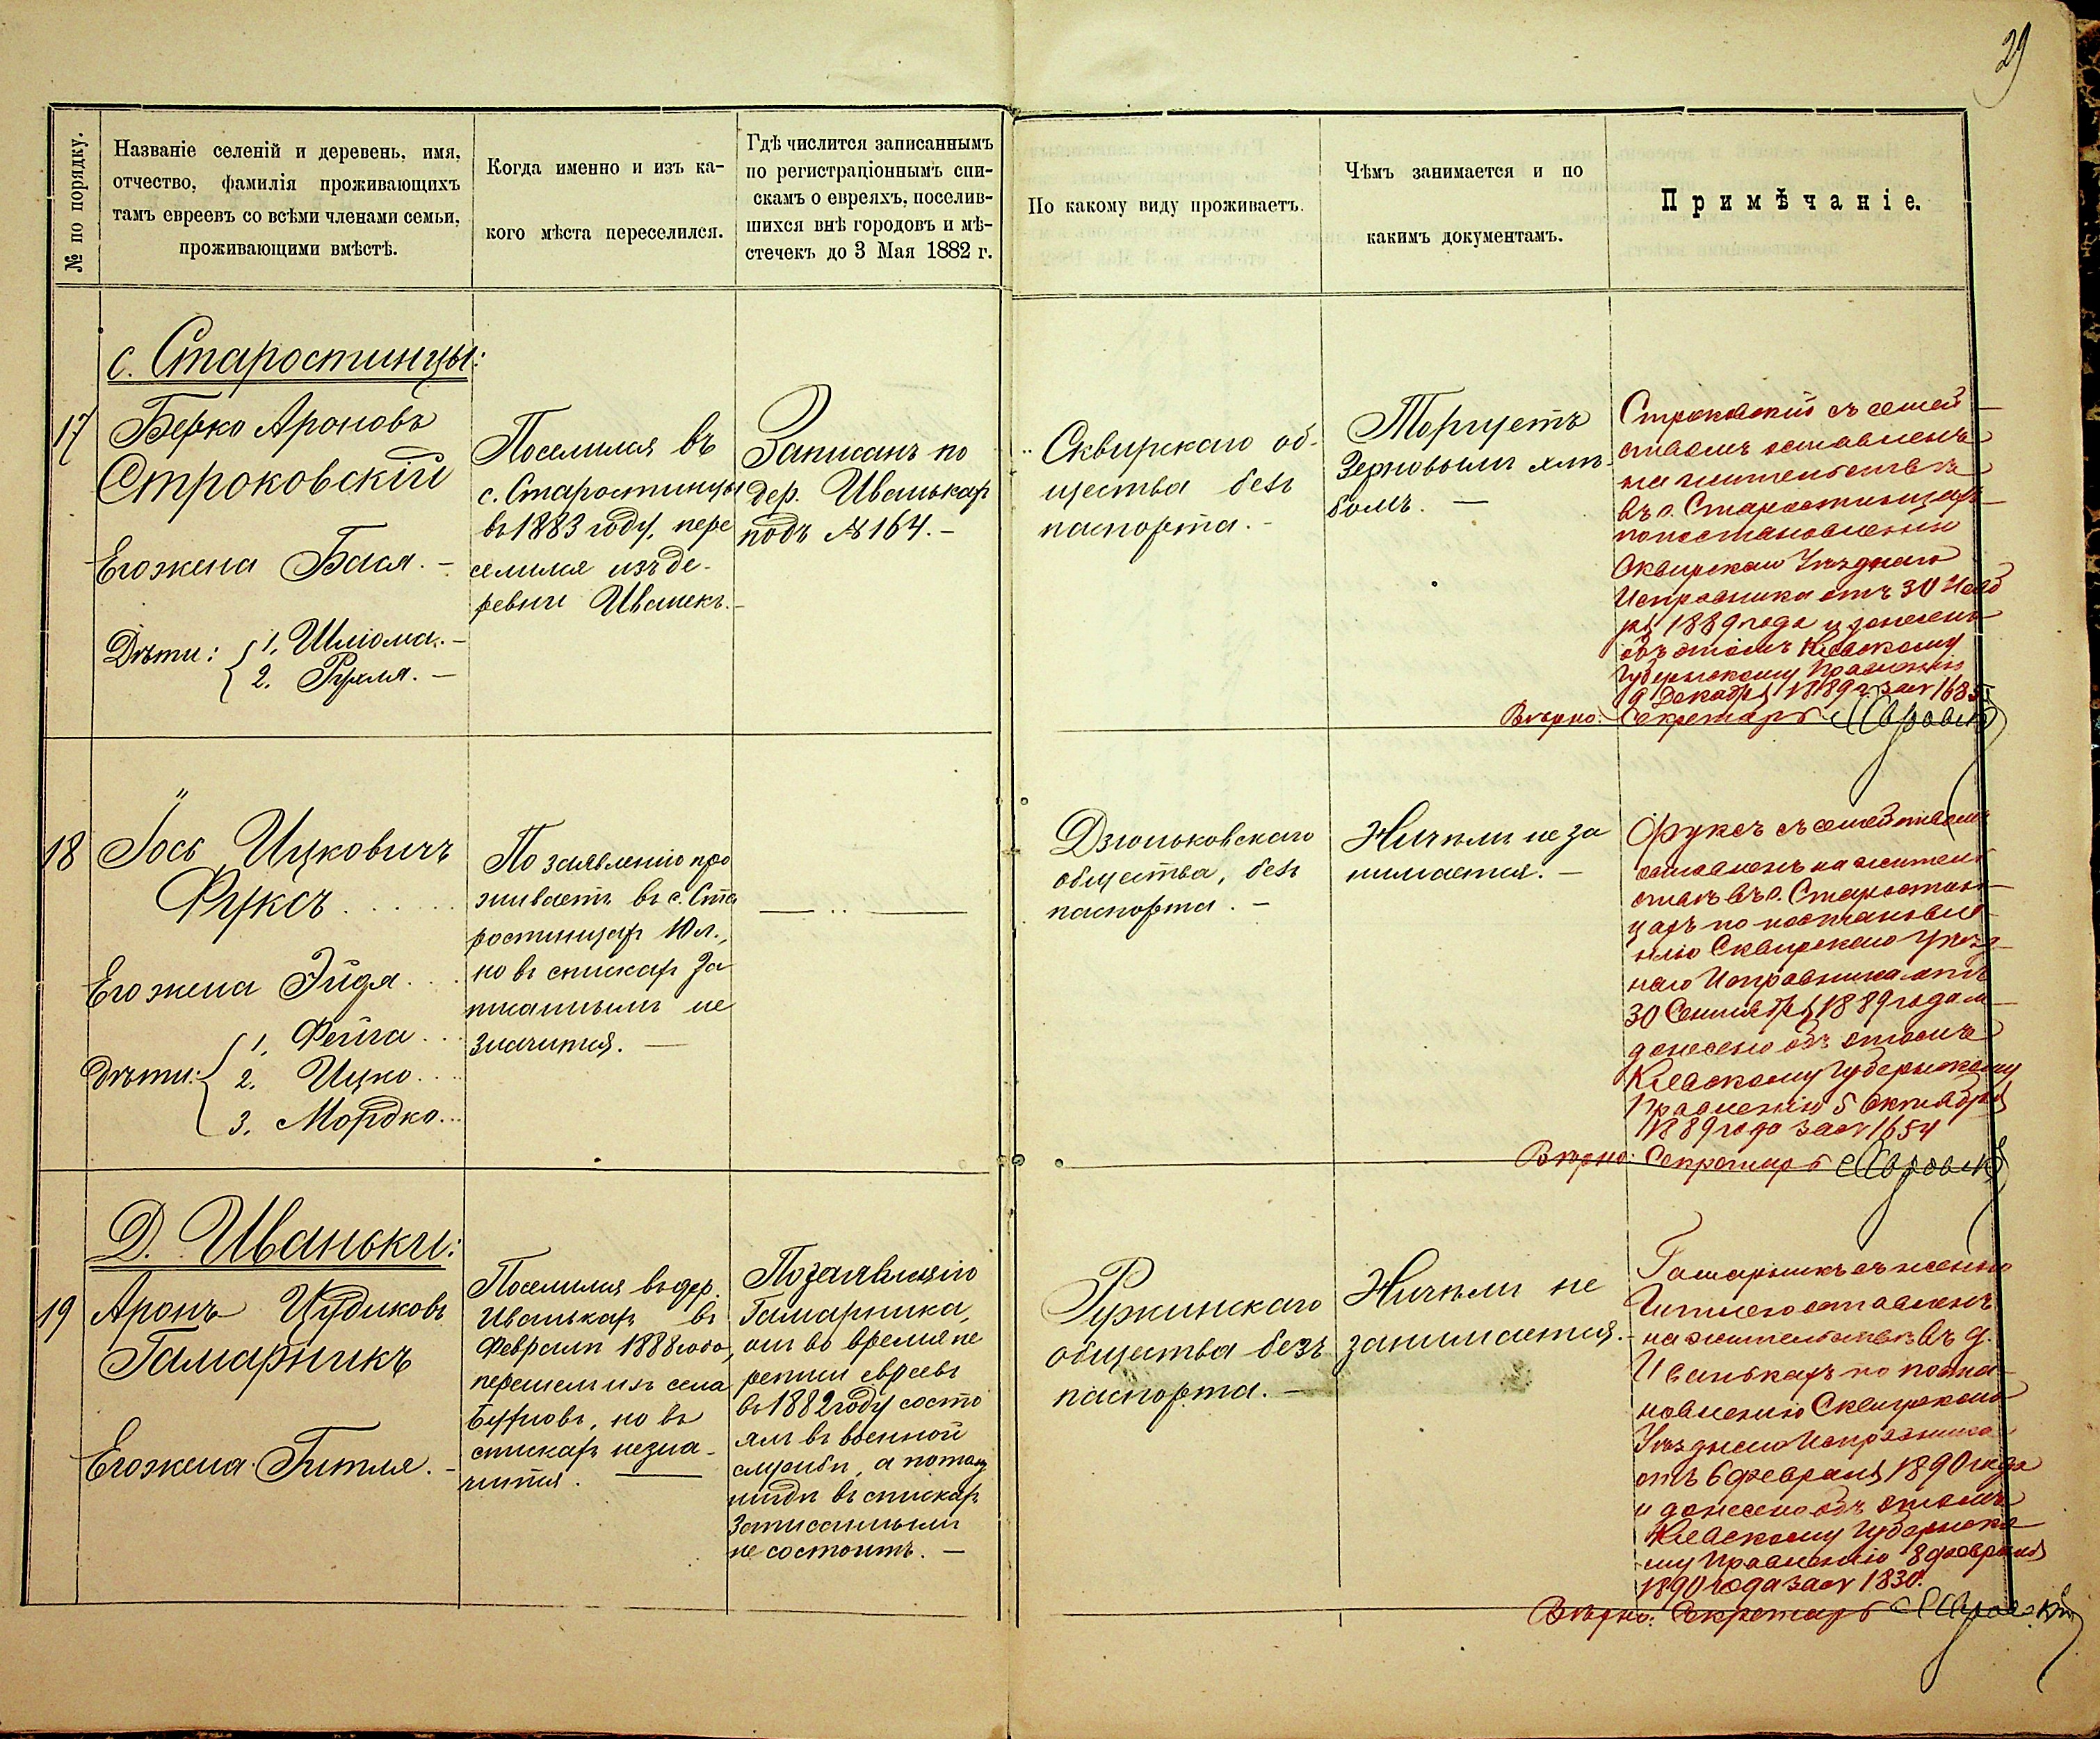 29
№ по порядку.
Названіе селеній и деревень, имя,
отчество, фамилія проживающихъ
тамъ евреевъ со всѣми членами семьи,
проживающими вмѣстѣ.
Когда именно и изъ ка-
кого мѣста переселился.
Гдѣ числится записаннымъ
по регистраціоннымъ спи-
скамъ о евреяхъ, поселив-
шихся внѣ городовъ и мѣ-
стечекъ до 3 Мая 1882 г.
По какому виду проживаетъ.
Чѣмъ занимается и по
какимъ документамъ.
Примѣчаніе.
с. Старостинцы:
17
Берко Ароновъ
Строковскій
Его жена Бася. –
Дѣти: 1. Шліома. –
2. Рухля. –
Поселился въ
с. Старостинцы
въ 1883 году, пере
селился изъ де-
ревни Иванекъ. –
Записанъ по
дер. Иванькахъ
подъ № 164. –
Сквирскаго об-
щества безъ
паспорта. –
Торгуетъ
зерновымъ хлѣ-
бомъ. –
Строковскій съ семей
ствомъ оставленъ
на жительствѣ
въ с. Старостинцахъ
по постановленію
Сквирскаго Уѣзднаго
Исправника отъ 30 Нояб
ря 1889 года и донесено
объ этомъ Кіевскому
Губернскому Правленію
9 Декабря 1889 г. за №
Вѣрно: Секретарь
18
Іось Ицковичъ
Фуксъ
Его жена Эйдя
Дѣти: 1. Фейга
2. Ицко
3. Мордко
По заявленію про
живаетъ въ с. Ста
ростинцахъ 10 л.,
но въ спискахъ за
писаннымъ не
значится. –
Дзюньковскаго
общества, безъ
паспорта. –
Ничѣмъ не за
нимается. –
Фуксъ съ семействомъ
оставленъ на житель
ствѣ въ с. Старостин-
цахъ по постановле-
нію Сквирскаго Уѣзд-
наго Исправника отъ
30 Сентября 1889 года и
донесено объ этомъ
Кіевскому Губернскому
Правленію 5 Октября
1889 года за № 1654
Вѣрно: Секретарь
Д. Иваньки:
19
Аронъ Цудиковъ
Гамарникъ
Его жена Гитля. –
Поселился въ дер.
Иванькахъ въ
Февралѣ 1888 года,
перешелъ изъ села
но въ
спискахъ незна-
чится.
По заявленію
Гамарника,
онъ во время пе
реписи евреевъ
въ 1882 году состо
ялъ въ военной
службѣ, а потому
нигдѣ въ спискахъ
записаннымъ
не состоитъ. –
Ружинскаго
общества безъ
паспорта. –
Ничѣмъ не
занимается. –
Гамарникъ съ женою
Гитлею оставленъ
на жительствѣ въ д.
Иванькахъ по поста-
новленію Сквирскаго
Уѣзднаго Исправника
отъ 6 февраля 1890 года
и донесено объ этомъ
Кіевскому Губернско
му Правленію 8 февраля
1890 года за № 1830.
Вѣрно: Секретарь